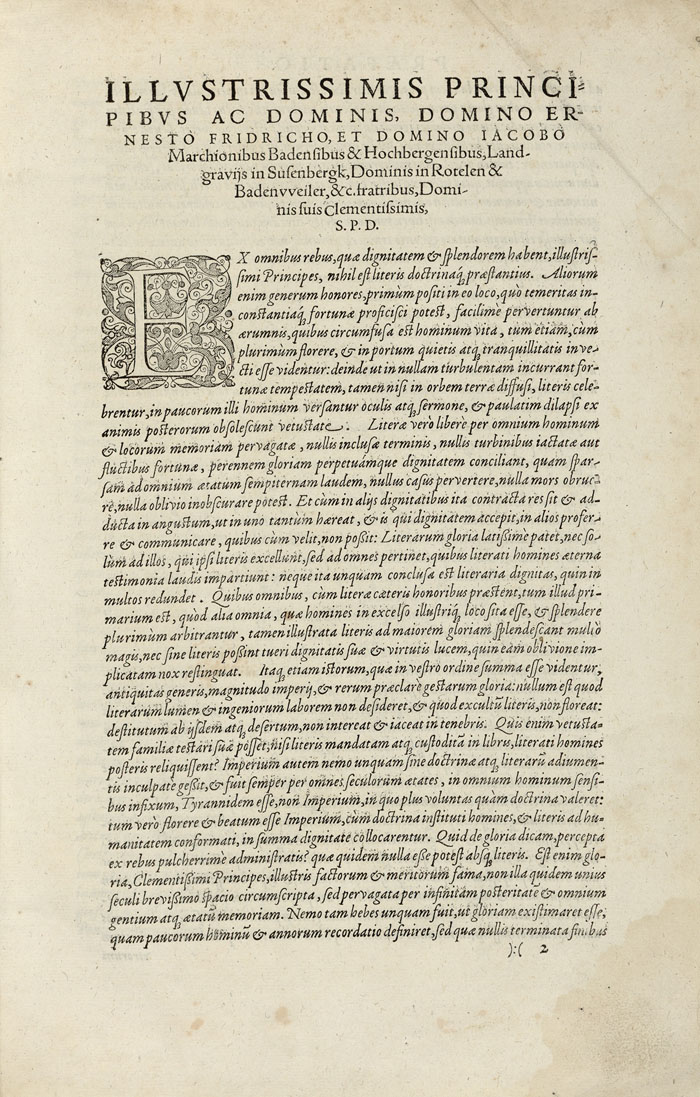 ILLVSTRISSIMIS PRINCI-
PIBVS AC DOMINIS, DOMINO ER-
NESTO FRIDRICHO, ET DOMINO IACOBO
Marchionibus Badensibus & Hochbergensibus, Land-
gravijs in Susenbergk, Dominis in Rotelen &
Badenvveiler, &c. fratribus, Domi-
nis suis Clementissimis,
S. P. D.
EX omnibus rebus, quæ dignitatem & splendorem habent, illustris-
simi Principes, nihil est literis doctrinaq́ præstantius. Aliorum
enim generum honores, primùm positi in eo loco, quò temeritas in-
constantiaq́ fortunæ proficisci potest, facilimè pervertuntur ab
ærumnis, quibus circumfusa est hominum vita, tum etiam, cùm
plurimùm florere, & in portum quietis atq; tranquillitatis inve-
cti esse videntur: deinde ut in nullam turbulentam incurrant for-
tunæ tempestatem, tamen nisi in orbem terræ diffusi, literis cele-
brentur, in paucorum illi hominum versantur oculis atq; sermone, & paulatim dilapsi ex
animis posterorum obsolescunt vetustate. Literæ verò liberè per omnium hominum
& locorum memoriam pervagatæ, nullis inclusæ terminis, nullis turbinibus iactatæ aut
fluctibus fortunæ, perennem gloriam perpetuámque dignitatem conciliant, quam spar-
sam ad omnium ætatum sempiternam laudem, nullus casus pervertere, nulla mors obrue-
re, nulla oblivio inobscurare potest. Et cùm in alijs dignitatibus ita contracta res sit & ad-
ducta in angustum, ut in uno tantùm hæreat, & is qui dignitatem accepit, in alios profer-
re & communicare, quibus cùm velit, non possit: Literarum gloria latissimè patet, nec so-
lùm ad illos, qui ipsi literis excellunt, sed ad omnes pertinet, quibus literati homines æterna
testimonia laudis impartiunt: neque ita unquam conclusa est literaria dignitas, quin in
multos redundet. Quibus omnibus, cùm literæ cæteris honoribus præstent, tum illud pri-
marium est, quòd alia omnia, quæ homines in excelso illustriq́ loco sita esse, & splendere
plurimùm arbitrantur, tamen illustrata literis ad maiorem gloriam splendescant multò
magis, nec sine literis possint tueri dignitatis suæ & virtutis lucem, quin eam oblivione im-
plicatam nox restinguat. Itaq; etiam istorum, quæ in vestro ordine summa esse videntur,
antiquitas generis, magnitudo imperij, & rerum præclarè gestarum gloria: nullum est quod
literarum lumen & ingeniorum laborem non desideret, & quod excultũ literis, non floreat:
destitutum ab ijsdem atq; desertum, non intereat & iaceat in tenebris. Quis enim vetusta-
tem familiæ testari suæ posset, nisi literis mandatam atq; custoditã in libris, literati homines
posteris reliquissent? Imperium autem nemo unquam sine doctrinæ atq; literarũ adiumen-
tis inculpatè gessit, & fuit semper per omnes seculorum ætates, in omnium hominum sensi-
bus infixum, Tyrannidem esse, non Imperium, in quo plus voluntas quàm doctrina valeret:
tum verò florere & beatum esse Imperium, cùm doctrina instituti homines, & literis ad hu-
manitatem conformati, in summa dignitate collocarentur. Quid de gloria dicam, percepta
ex rebus pulcherrimè administratis? quæ quidem nulla esse potest absq; literis. Est enim glo-
ria, Clementissimi Principes, illustris factorum & meritorum fama, non illa quidem unius
seculi brevissimo spacio circumscripta, sed pervagata per infinitam posteritatẽ & omnium
gentium atq; ætatũ memoriam. Nemo tam hebes unquam fuit, ut gloriam existimaret esse,
quam paucorum hominũ & annorum recordatio definiret, sed quæ nullis terminata finibus
):( 2